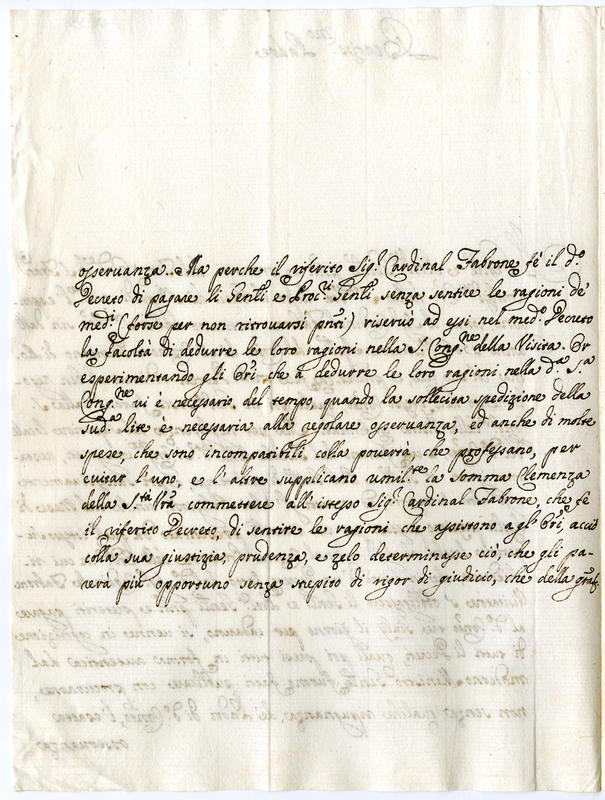 osseruanza. Ma perche il riferito Sig.r Cardinal Fabrone fè il d.o
Decreto di pagare li Gen̅li e Proc.ri Gen̅li senza sentire le ragioni de
med.i (forse per non ritrouarsi pn̅ti) riseruò ad essi nel med.o Decreto
la facoltà di dedurre le loro ragioni nella S. Cong.ne della Visita. Or
esperimentando gli Ori̅ che a dedurre le loro ragioni nella d.a S.a
Cong.ne ui è necessario del tempo, quando la sollecita spedizione della
sud.a lite è necessaria alla regolare osseruanza, ed anche di molte
spese, che sono incomparibili colla pouertà, che professano, per
euitar l'uno, e l'altre supplicano umil.te la somma Clemenza
della S.tà Vrā commettere all'istesso Sig.r Cardinal Fabrone, che fè
il riferito Decreto, di sentire le ragioni che assistono agl'Ori̅, acciò
colla sua giustizia, prudenza, e zelo determinasse ciò, che gli pa-
rerà più opportuno senza strepito di rigor di giudicio, che della grā